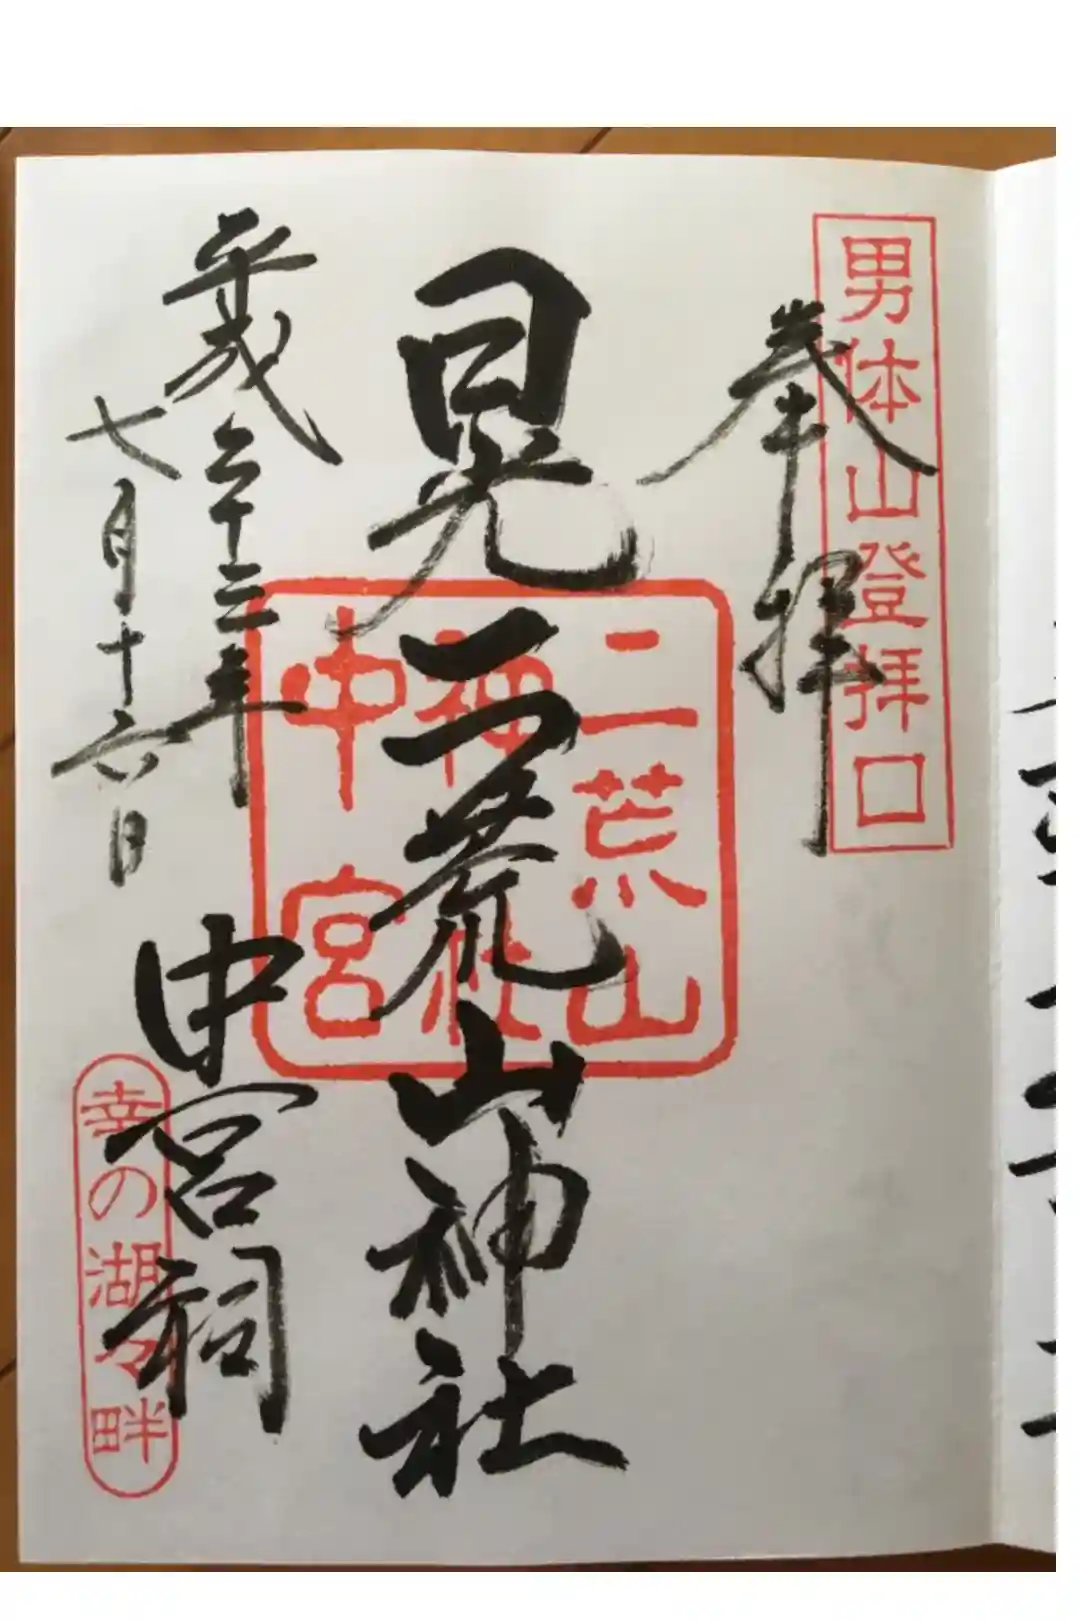 男体山登拝口
奉拝
日光二荒山神社
二荒山
神社
中宮
平成二十三年
七月十六日
中宮祠
幸の湖々畔